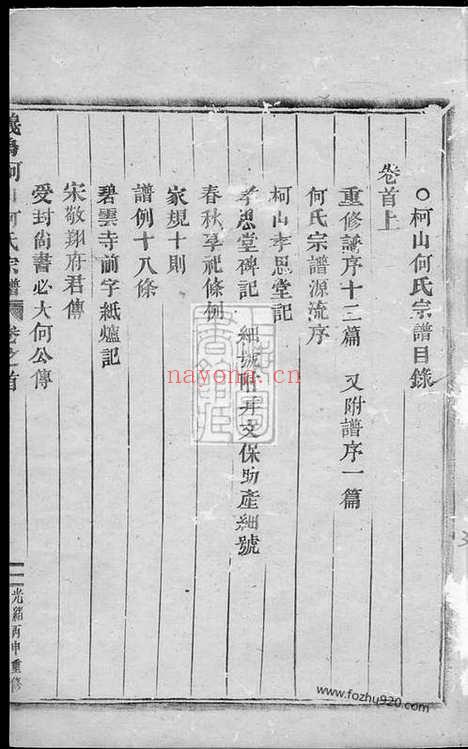 ○柯山何氏宗譜目錄
卷首上
重修譜序十三篇 又附譜序一篇
何氏宗譜源流序
柯山孝思堂記
孝思堂碑記 細號附井文保助產細號
春秋享祀條例
家規十則
譜例十八條
碧雲寺前字紙爐記
宋敬翔府君傳
受封尚書必大何公傳
義烏柯山何氏宗譜 卷之首 一 光緒丙申重修
nayona.cn
www.fozhu920.com